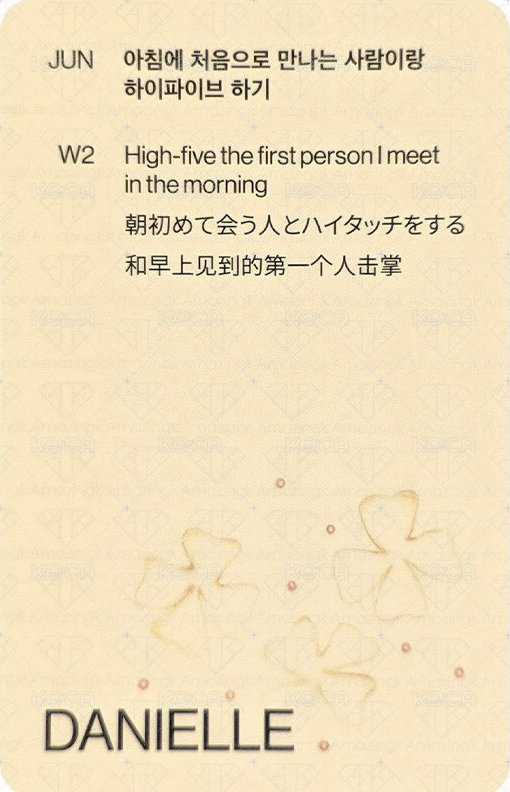 JUN 아침에 처음으로 만나는 사람이랑
하이파이브 하기
W2 High-five the first person I meet
in the morning
朝初めて会う人とハイタッチをする
和早上见到的第一个人击掌
DANIELLE